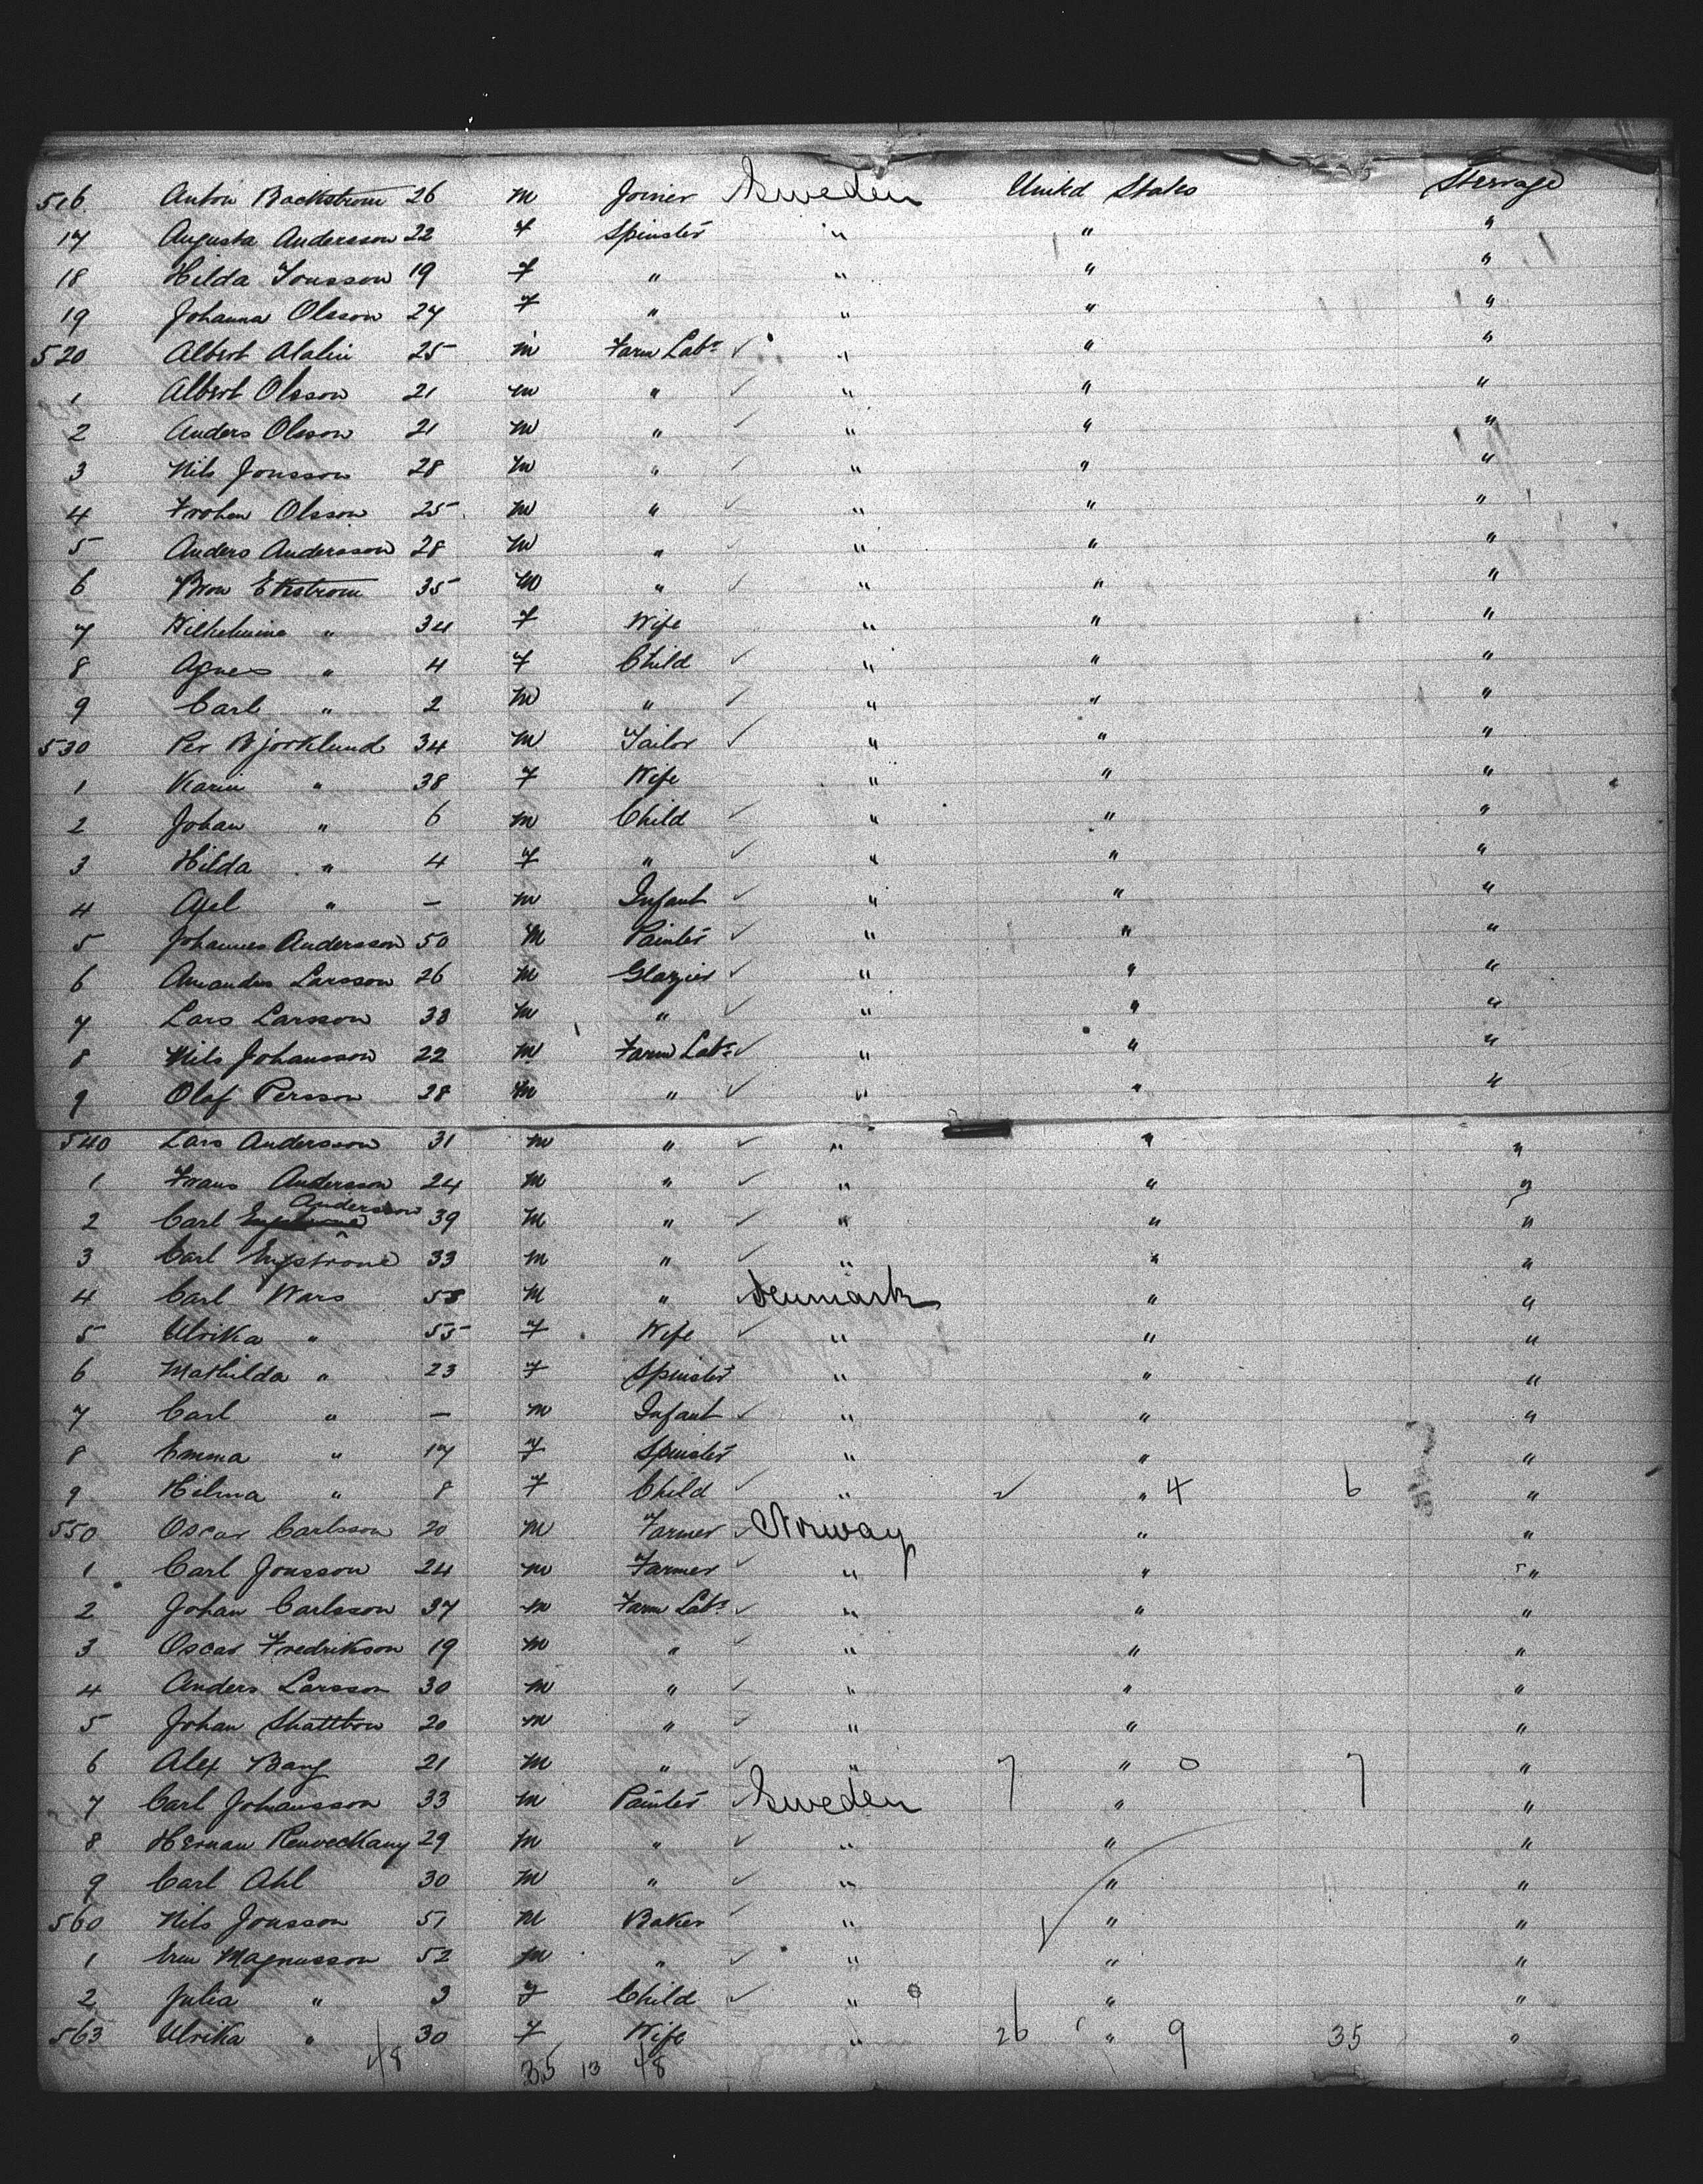 516 Anton Backstrom 26 m Joiner Sweden United States Steerage
17 Augusta Andersson 22 f Spinster " " "
18 Hilda Jonsson 19 f " " " "
19 Johanna Olsson 27 f " " " "
520 Albert Malin 25 m Farm Labr " " "
1 Albert Olsson 21 m " " " "
2 Anders Olsson 21 m " " " "
3 Nils Jonsson 28 m " " " "
4 Olsson 25 m " " " "
5 Anders Andersson 28 m " " " "
6 Ekstrom 35 m " " " "
7 Wilhelmina " 34 f Wife " " "
8 Agnes " 4 f Child " " "
9 Carl " 2 m " " " "
530 Per Bjorklund 34 m Tailor " " "
1 Karin " 38 f Wife " " "
2 Johan " 6 m Child " " "
3 Hilda " 4 f " " " "
4 Axel " — m Infant " " "
5 Johannes Andersson 50 m Painter " " "
6 Amandus Larsson 26 m Glazier " " "
7 Lars Larsson 33 m " " " "
8 Nils Johansson 22 m Farm Labr " " "
9 Olof Persson 28 m " " " "
540 Lars Andersson 31 m " " " "
1 Frans Andersson 24 m " " " "
2 Carl Andersson 39 m " " " "
3 Carl Engstrom 33 m " " " "
4 Carl Wars 58 m " Denmark " "
5 Ulrika " 55 f Wife " " "
6 Mathilda " 23 f Spinster " " "
7 Carl " — m Infant " " "
8 Emma " 17 f Spinster " " "
9 Hilma " 8 f Child " " 4 6 "
550 Oscar Carlsson 20 m Farmer Norway " "
1 Carl Jonsson 24 m Farmer " " "
2 Johan Carlsson 37 m Farm Labr " " "
3 Oscar Fredrikson 19 m " " " "
4 Anders Larsson 30 m " " " "
5 Johan Shattbow 20 m " " " "
6 Alex Bang 21 m " " 7 " 0 7 "
7 Carl Johansson 33 m Painter Sweden " "
8 Herman 29 m " " " "
9 Carl Ahl 30 m " " " "
560 Nils Jonsson 51 m Baker " " "
1 Magnusson 52 m " " " "
2 Julia " 3 f Child " " "
563 Ulrika " 30 f Wife " 26 " 9 35 "
48 35 13 48